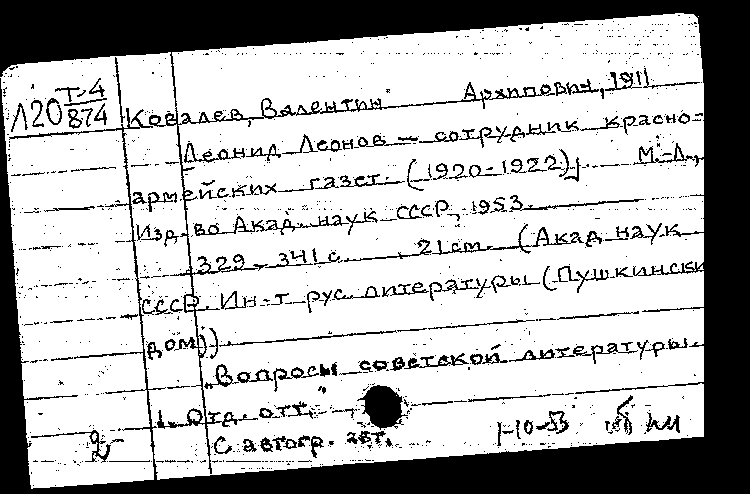 Л20 Т-4/874
Ковалев, Валентин Архипович, 1911
Леонид Леонов — сотрудник красно-
армейских газет. (1920-1922). М.-Л.,
Изд-во Акад. наук СССР, 1953.
329-341 с. , 21 см. (Акад. наук
СССР. Ин-т рус. литературы (Пушкински
дом)).
„Вопросы советской литературы.
1. Отд. отт."
С автогр. авт. 1-10-53